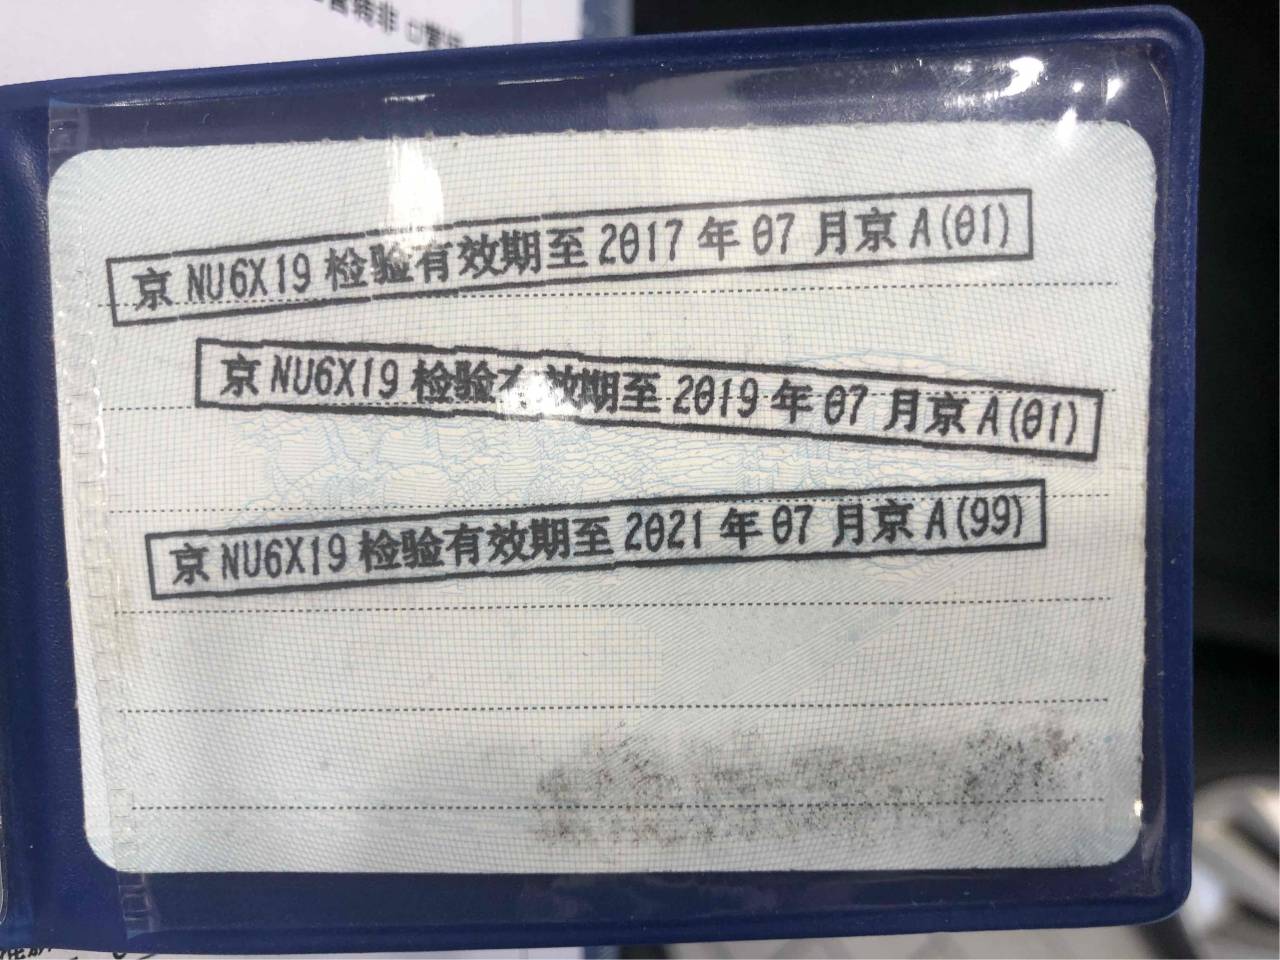 京NU6X19检验有效期至2017年07月京A(01)
京NU6X19检验有效期至2019年07月京A(01)
京NU6X19检验有效期至2021年07月京A(99)